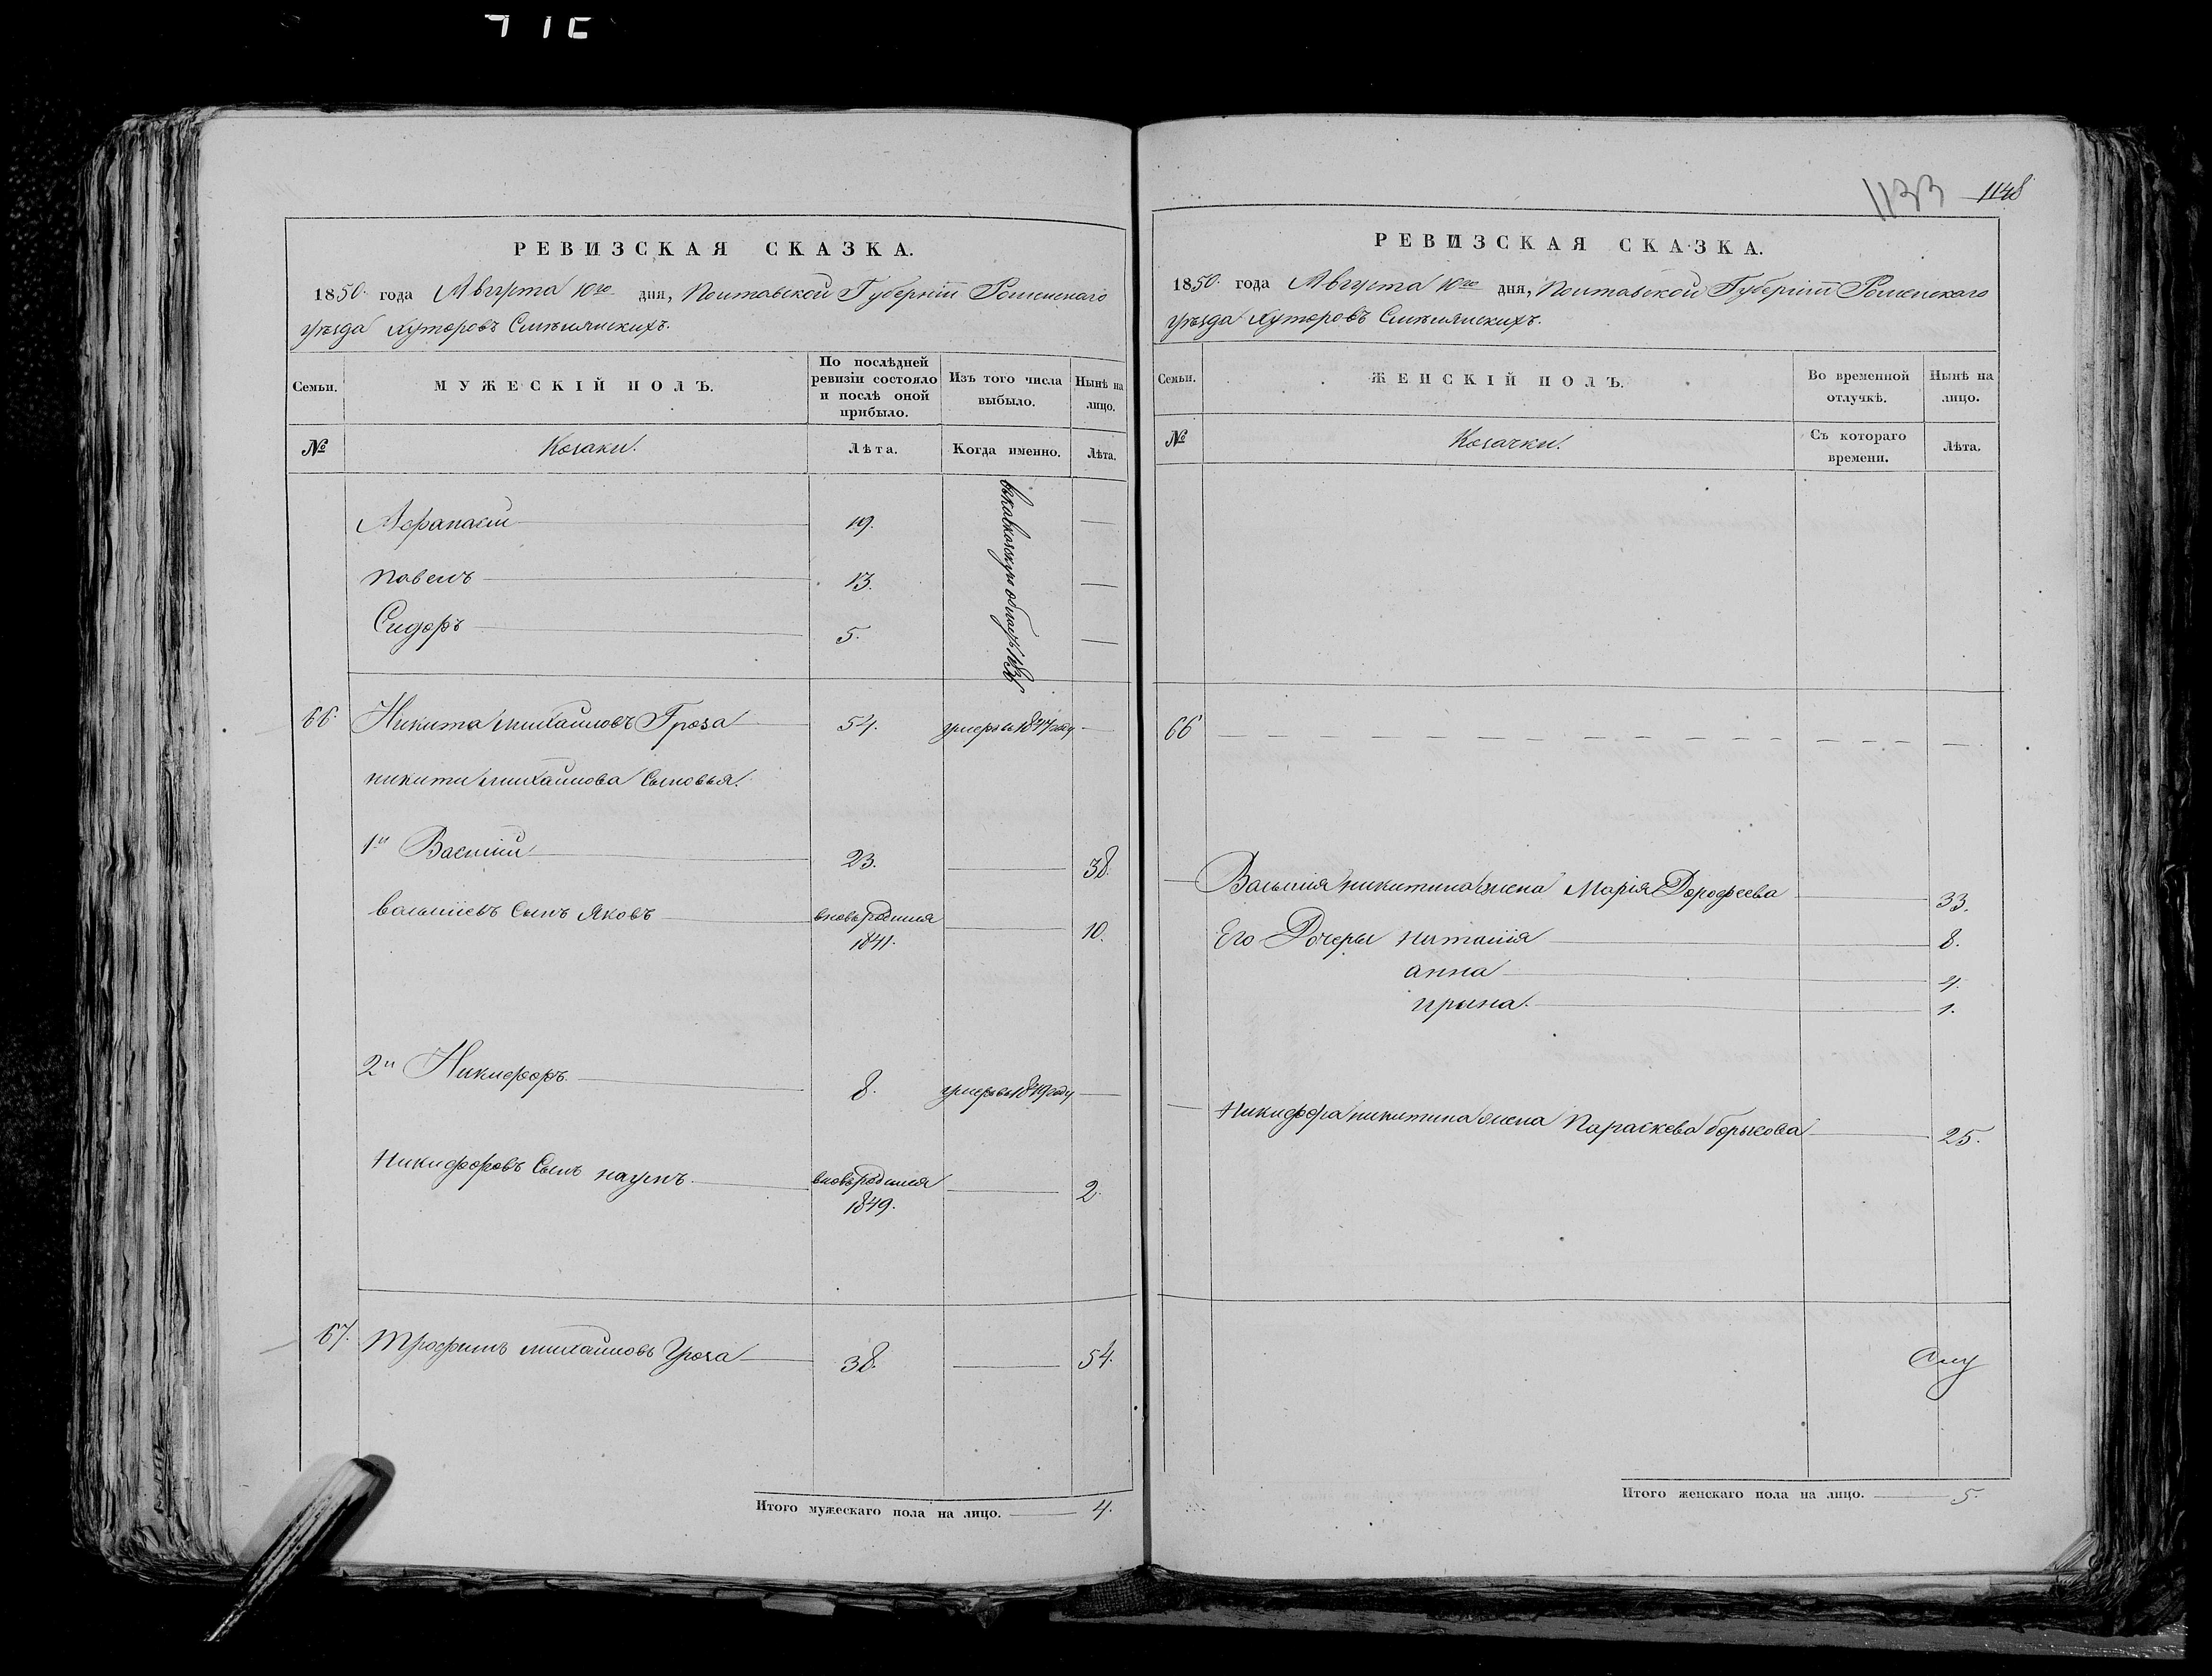 1133 1148
РЕВИЗСКАЯ СКАЗКА.
1850. года Августа 10го дня, Полтавской Губерніи Роменскаго
уѣзда Хуторовъ Смѣлянскихъ.
Семьи.
МУЖЕСКІЙ ПОЛЪ.
По послѣдней ревизіи состояло и послѣ оной прибыло.
Изъ того числа выбыло.
Нынѣ на лицо.
№
Козаки.
Лѣта.
Когда именно.
Лѣта.
Афанасій — 19. —
Павелъ — 13. —
Сидоръ — 5. —
въ кавказскую область
66. Никита Михайловъ Гроза — 54. умеръ въ 1847 году —
никиты михайлова Сыновья.
1й Василій — 23. — 38.
васильевъ Сынъ Яковъ — вновь родился — 10.
1841.
2й Никифоръ. — 8. умеръ въ 1849 году —
Никифоровъ Сынъ наумъ. — вновь родился — 2.
1849.
67. Трофимъ михайловъ Гроза — 38. — 54.
Итого мужескаго пола на лицо. — 4.
РЕВИЗСКАЯ СКАЗКА.
1850. года Августа 10го дня, Полтавской Губерніи Роменскаго
уѣзда Хуторовъ Смѣлянскихъ.
Семьи.
ЖЕНСКІЙ ПОЛЪ.
Во временной отлучкѣ.
Нынѣ на лицо.
№
Козачки.
Съ котораго времени.
Лѣта.
66
— Василія никитина жена Марія Дорофеева — 33.
Его Дочеры Наталія — 8.
анна — 4.
ирына. — 1.
— Никифора никитина жена Параскева борысова — 25.
Итого женскаго пола на лицо. — 5.